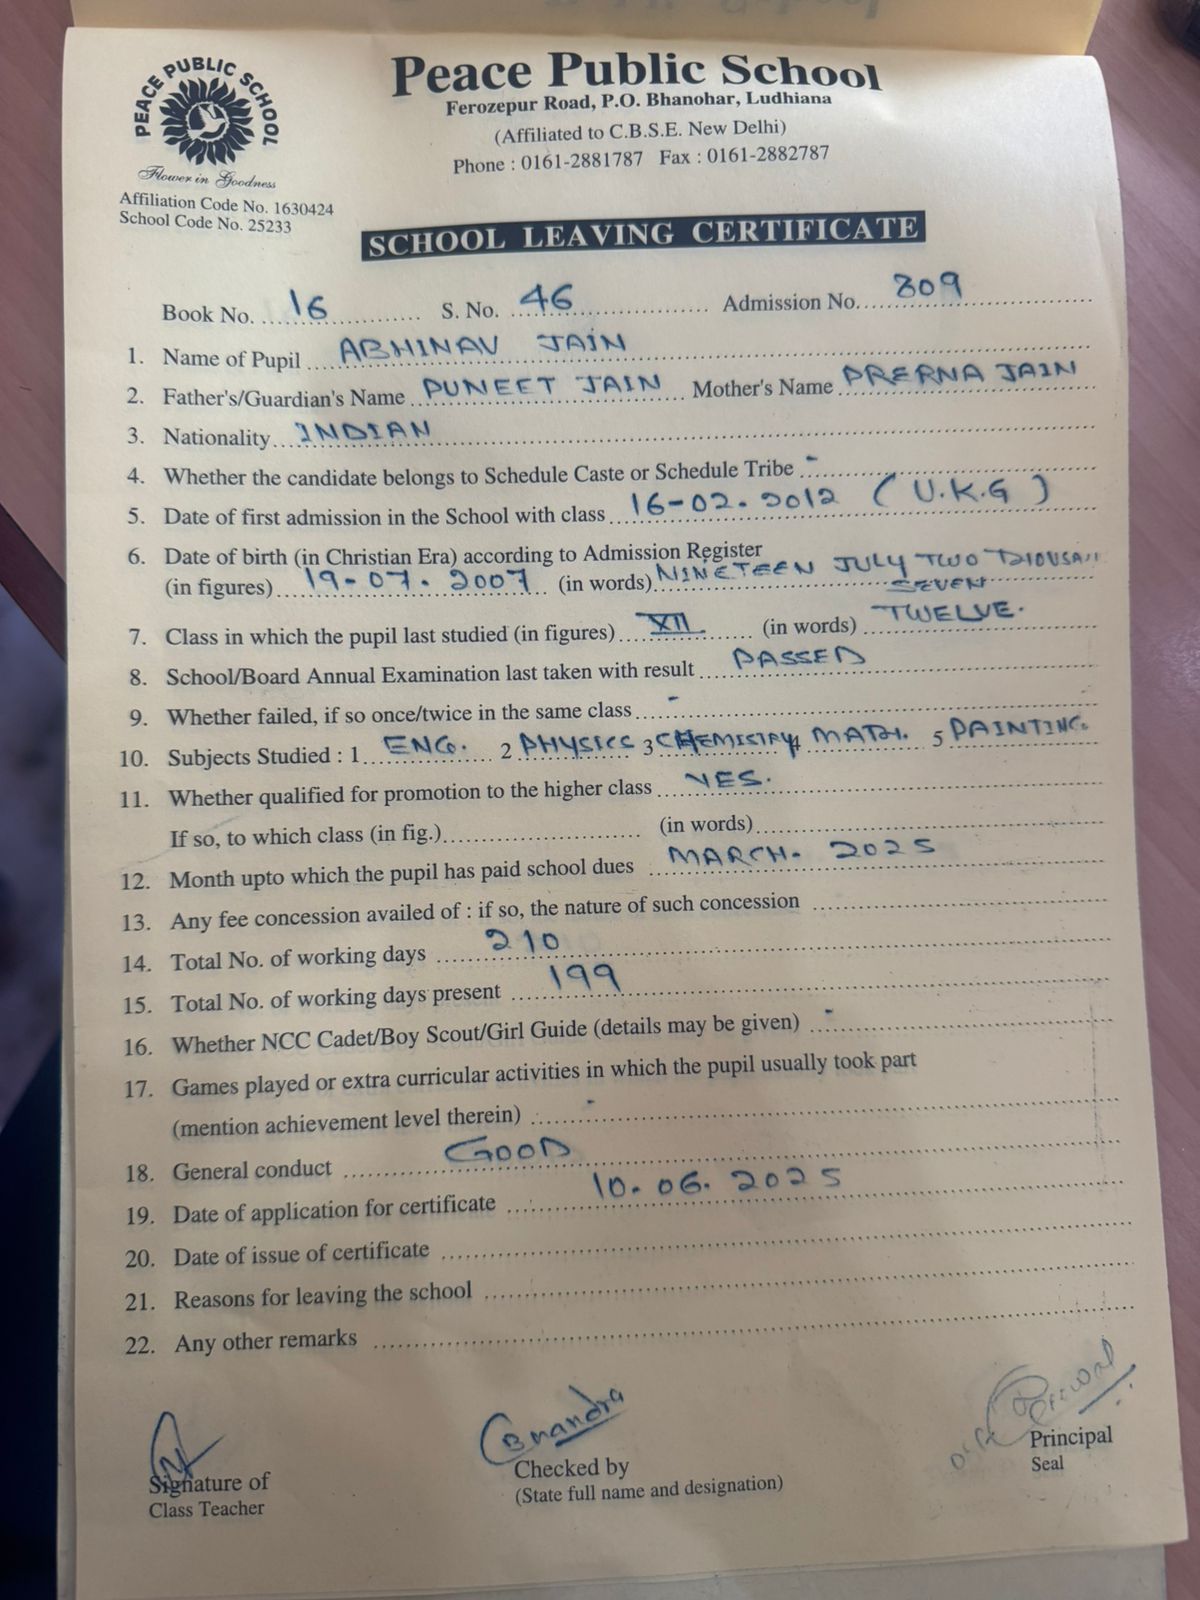 PEACE PUBLIC SCHOOL
Flower in Goodness
Affiliation Code No. 1630424
School Code No. 25233
Peace Public School
Ferozepur Road, P.O. Bhanohar, Ludhiana
(Affiliated to C.B.S.E. New Delhi)
Phone : 0161-2881787 Fax : 0161-2882787
SCHOOL LEAVING CERTIFICATE
Book No. 16 S. No. 46 Admission No. 809
1. Name of Pupil ABHINAV JAIN
2. Father's/Guardian's Name PUNEET JAIN Mother's Name PRERNA JAIN
3. Nationality INDIAN
4. Whether the candidate belongs to Schedule Caste or Schedule Tribe -
5. Date of first admission in the School with class 16-02-2012 (U.K.G)
6. Date of birth (in Christian Era) according to Admission Register
(in figures) 19-07-2007 (in words) NINETEEN JULY TWO
SEVEN
7. Class in which the pupil last studied (in figures) XII (in words) TWELVE.
8. School/Board Annual Examination last taken with result PASSED
9. Whether failed, if so once/twice in the same class -
10. Subjects Studied : 1 ENG. 2 PHYSICS 3 CHEMISTRY 4 MATH. 5 PAINTING
11. Whether qualified for promotion to the higher class YES.
If so, to which class (in fig.) (in words)
12. Month upto which the pupil has paid school dues MARCH. 2025
13. Any fee concession availed of : if so, the nature of such concession
14. Total No. of working days 210
15. Total No. of working days present 199
16. Whether NCC Cadet/Boy Scout/Girl Guide (details may be given) -
17. Games played or extra curricular activities in which the pupil usually took part
(mention achievement level therein) -
18. General conduct GOOD
19. Date of application for certificate 10.06.2025
20. Date of issue of certificate
21. Reasons for leaving the school
22. Any other remarks
Signature of
Class Teacher
Checked by
(State full name and designation)
Principal
Seal